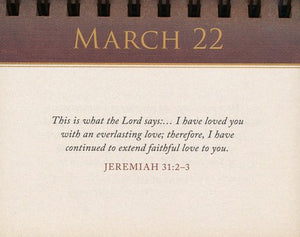 MARCH 22
This is what the Lord says:... I have loved you
with an everlasting love; therefore, I have
continued to extend faithful love to you.
JEREMIAH 31:2–3